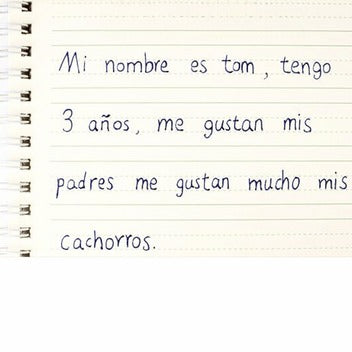 Mi nombre es tom, tengo
3 años, me gustan mis
padres me gustan mucho mis
cachorros.